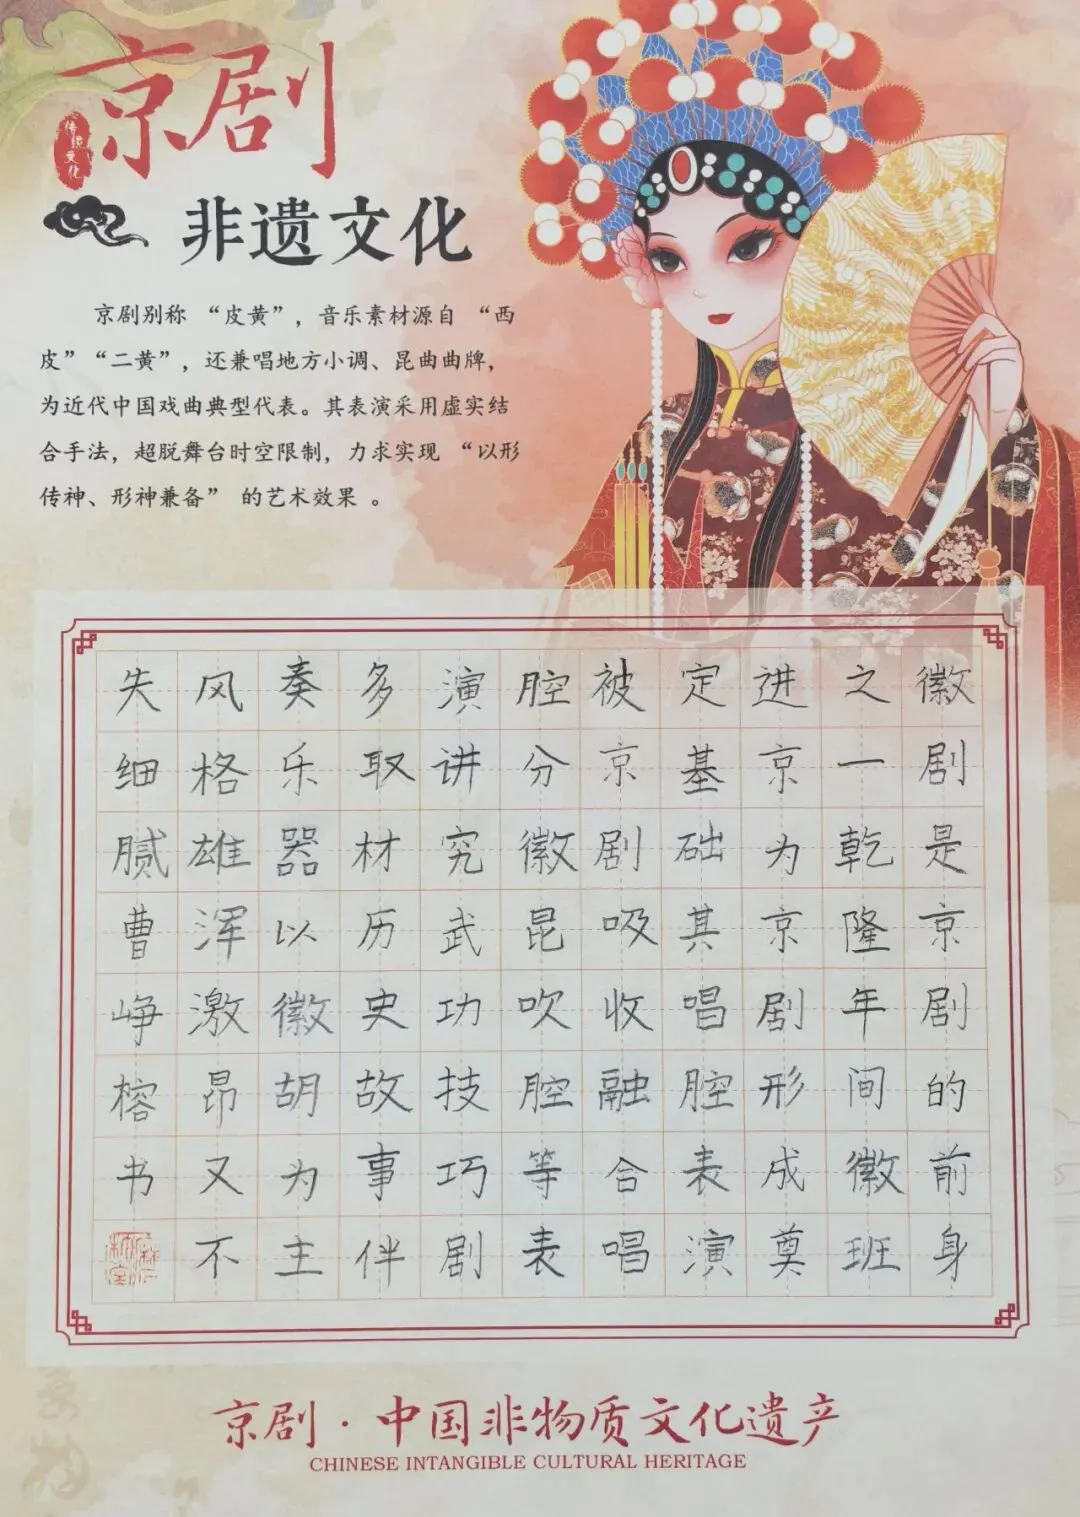 京剧
传统文化
非遗文化
京剧别称“皮黄”，音乐素材源自“西
皮”“二黄”，还兼唱地方小调、昆曲曲牌，
为近代中国戏曲典型代表。其表演采用虚实结
合手法，超脱舞台时空限制，力求实现“以形
传神、形神兼备”的艺术效果。
徽剧是京剧的前身
之一乾隆年间徽班
进京为京剧形成奠
定基础其唱腔表演
被京剧吸收融合唱
腔分徽昆吹腔等表
演讲究武功技巧剧
多取材历史故事伴
奏乐器以徽胡为主
风格雄浑激昂又不
失细腻曹峥榕书
京剧·中国非物质文化遗产
CHINESE INTANGIBLE CULTURAL HERITAGE